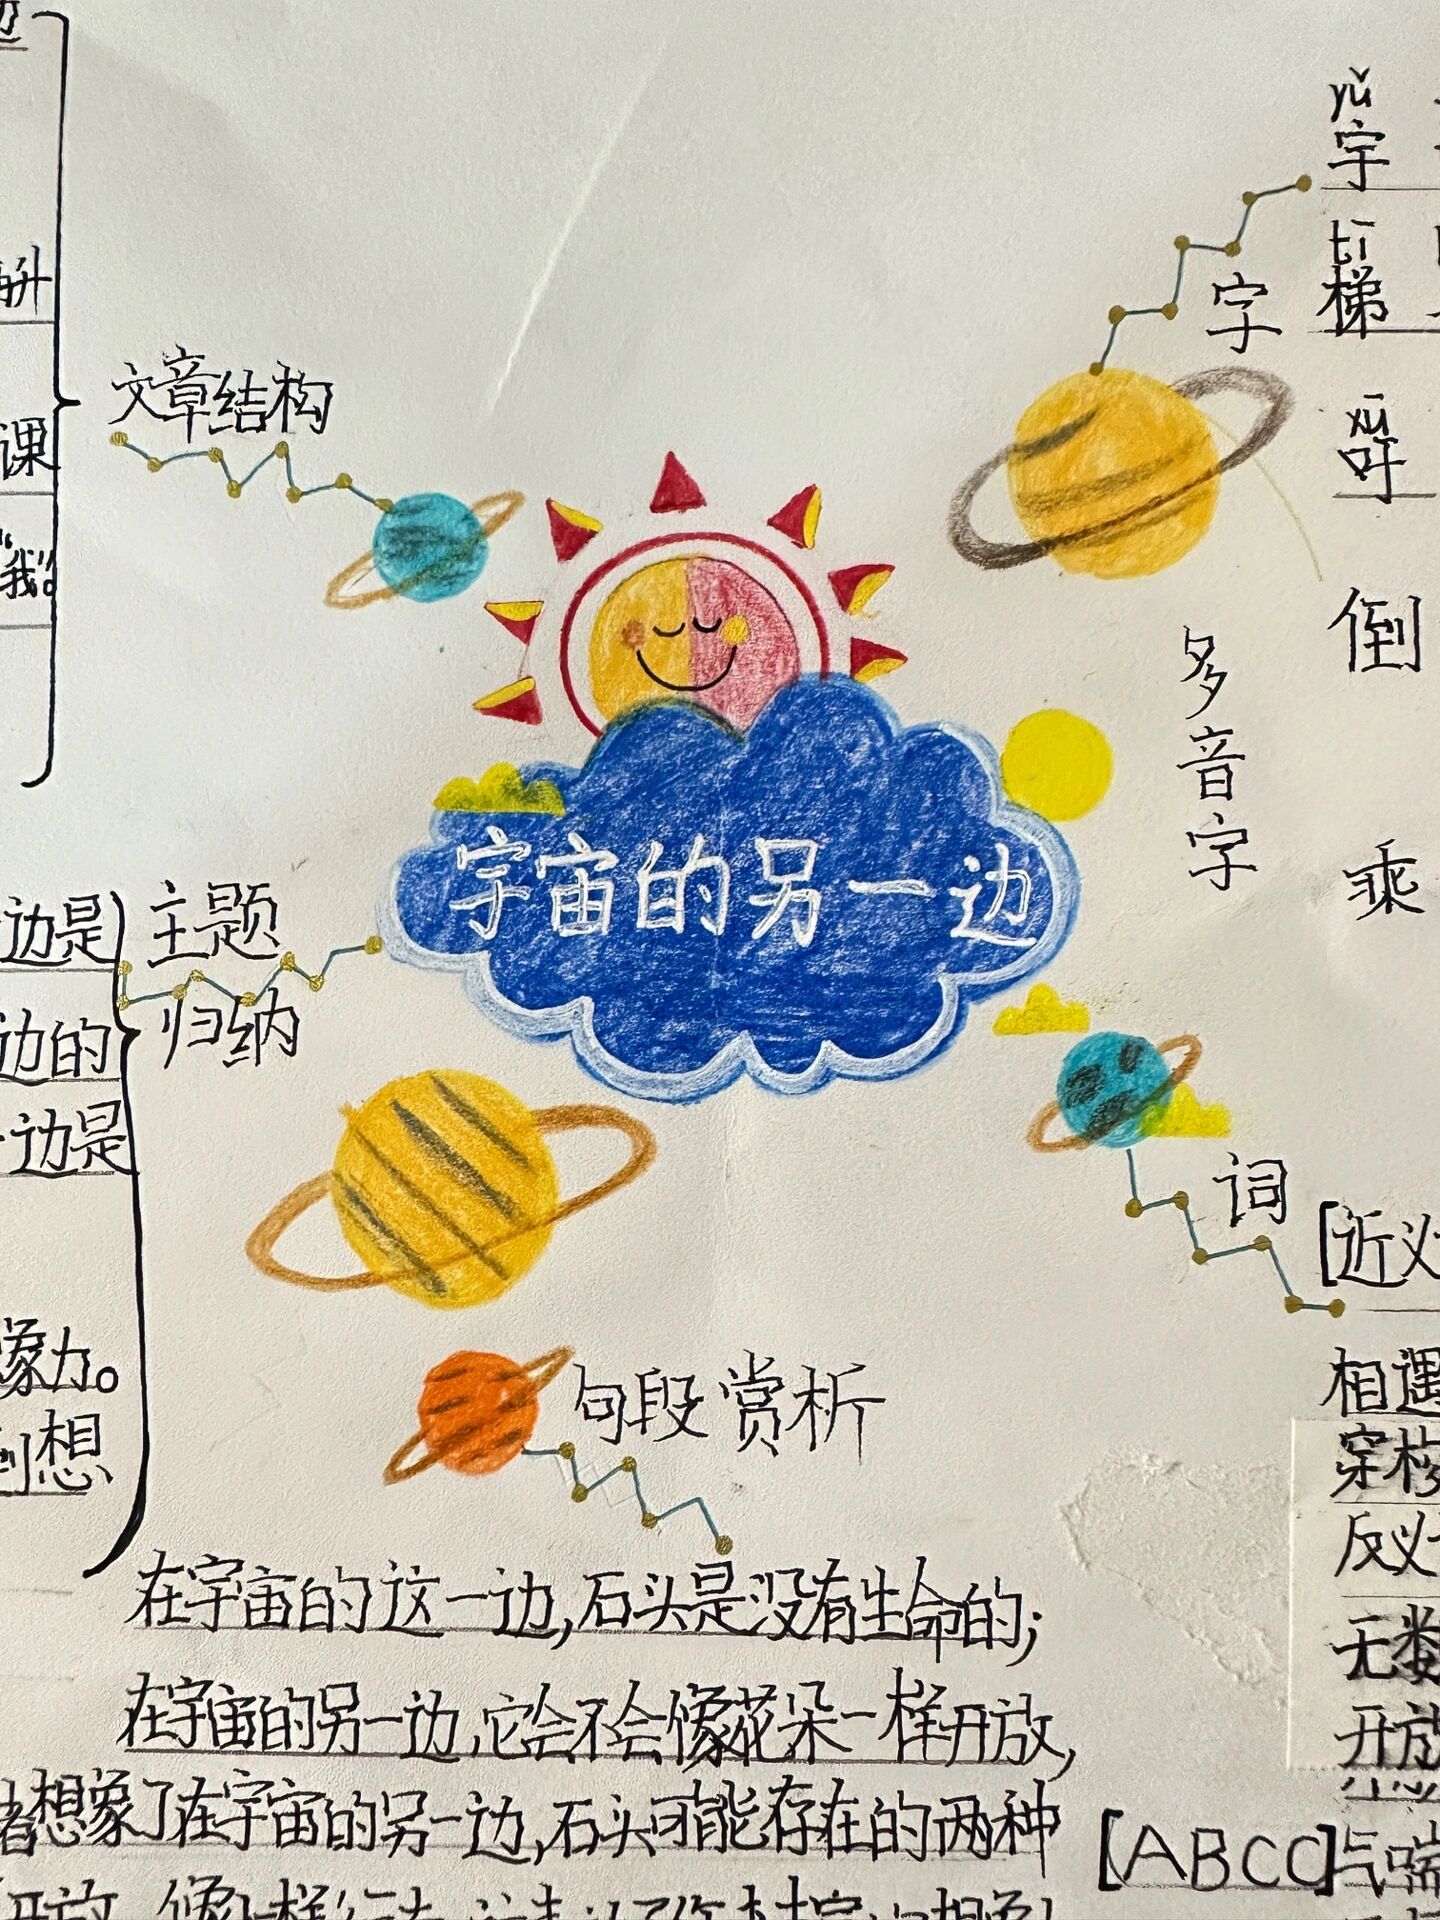 yǔ
宇
tī
梯
字
xū
吁
文章结构
课
“我”。
倒
多音字
宇宙的另一边
乘
边是
主题
归纳
边的
一边是
词
[近义
像力。
到想
句段赏析
相遇
反义
在宇宙的这一边,石头是没有生命的;
在宇宙的另一边,它会不会像花朵一样开放,
者想象了在宇宙的另一边,石头可能存在的两种
开放
[ABCC]气喘